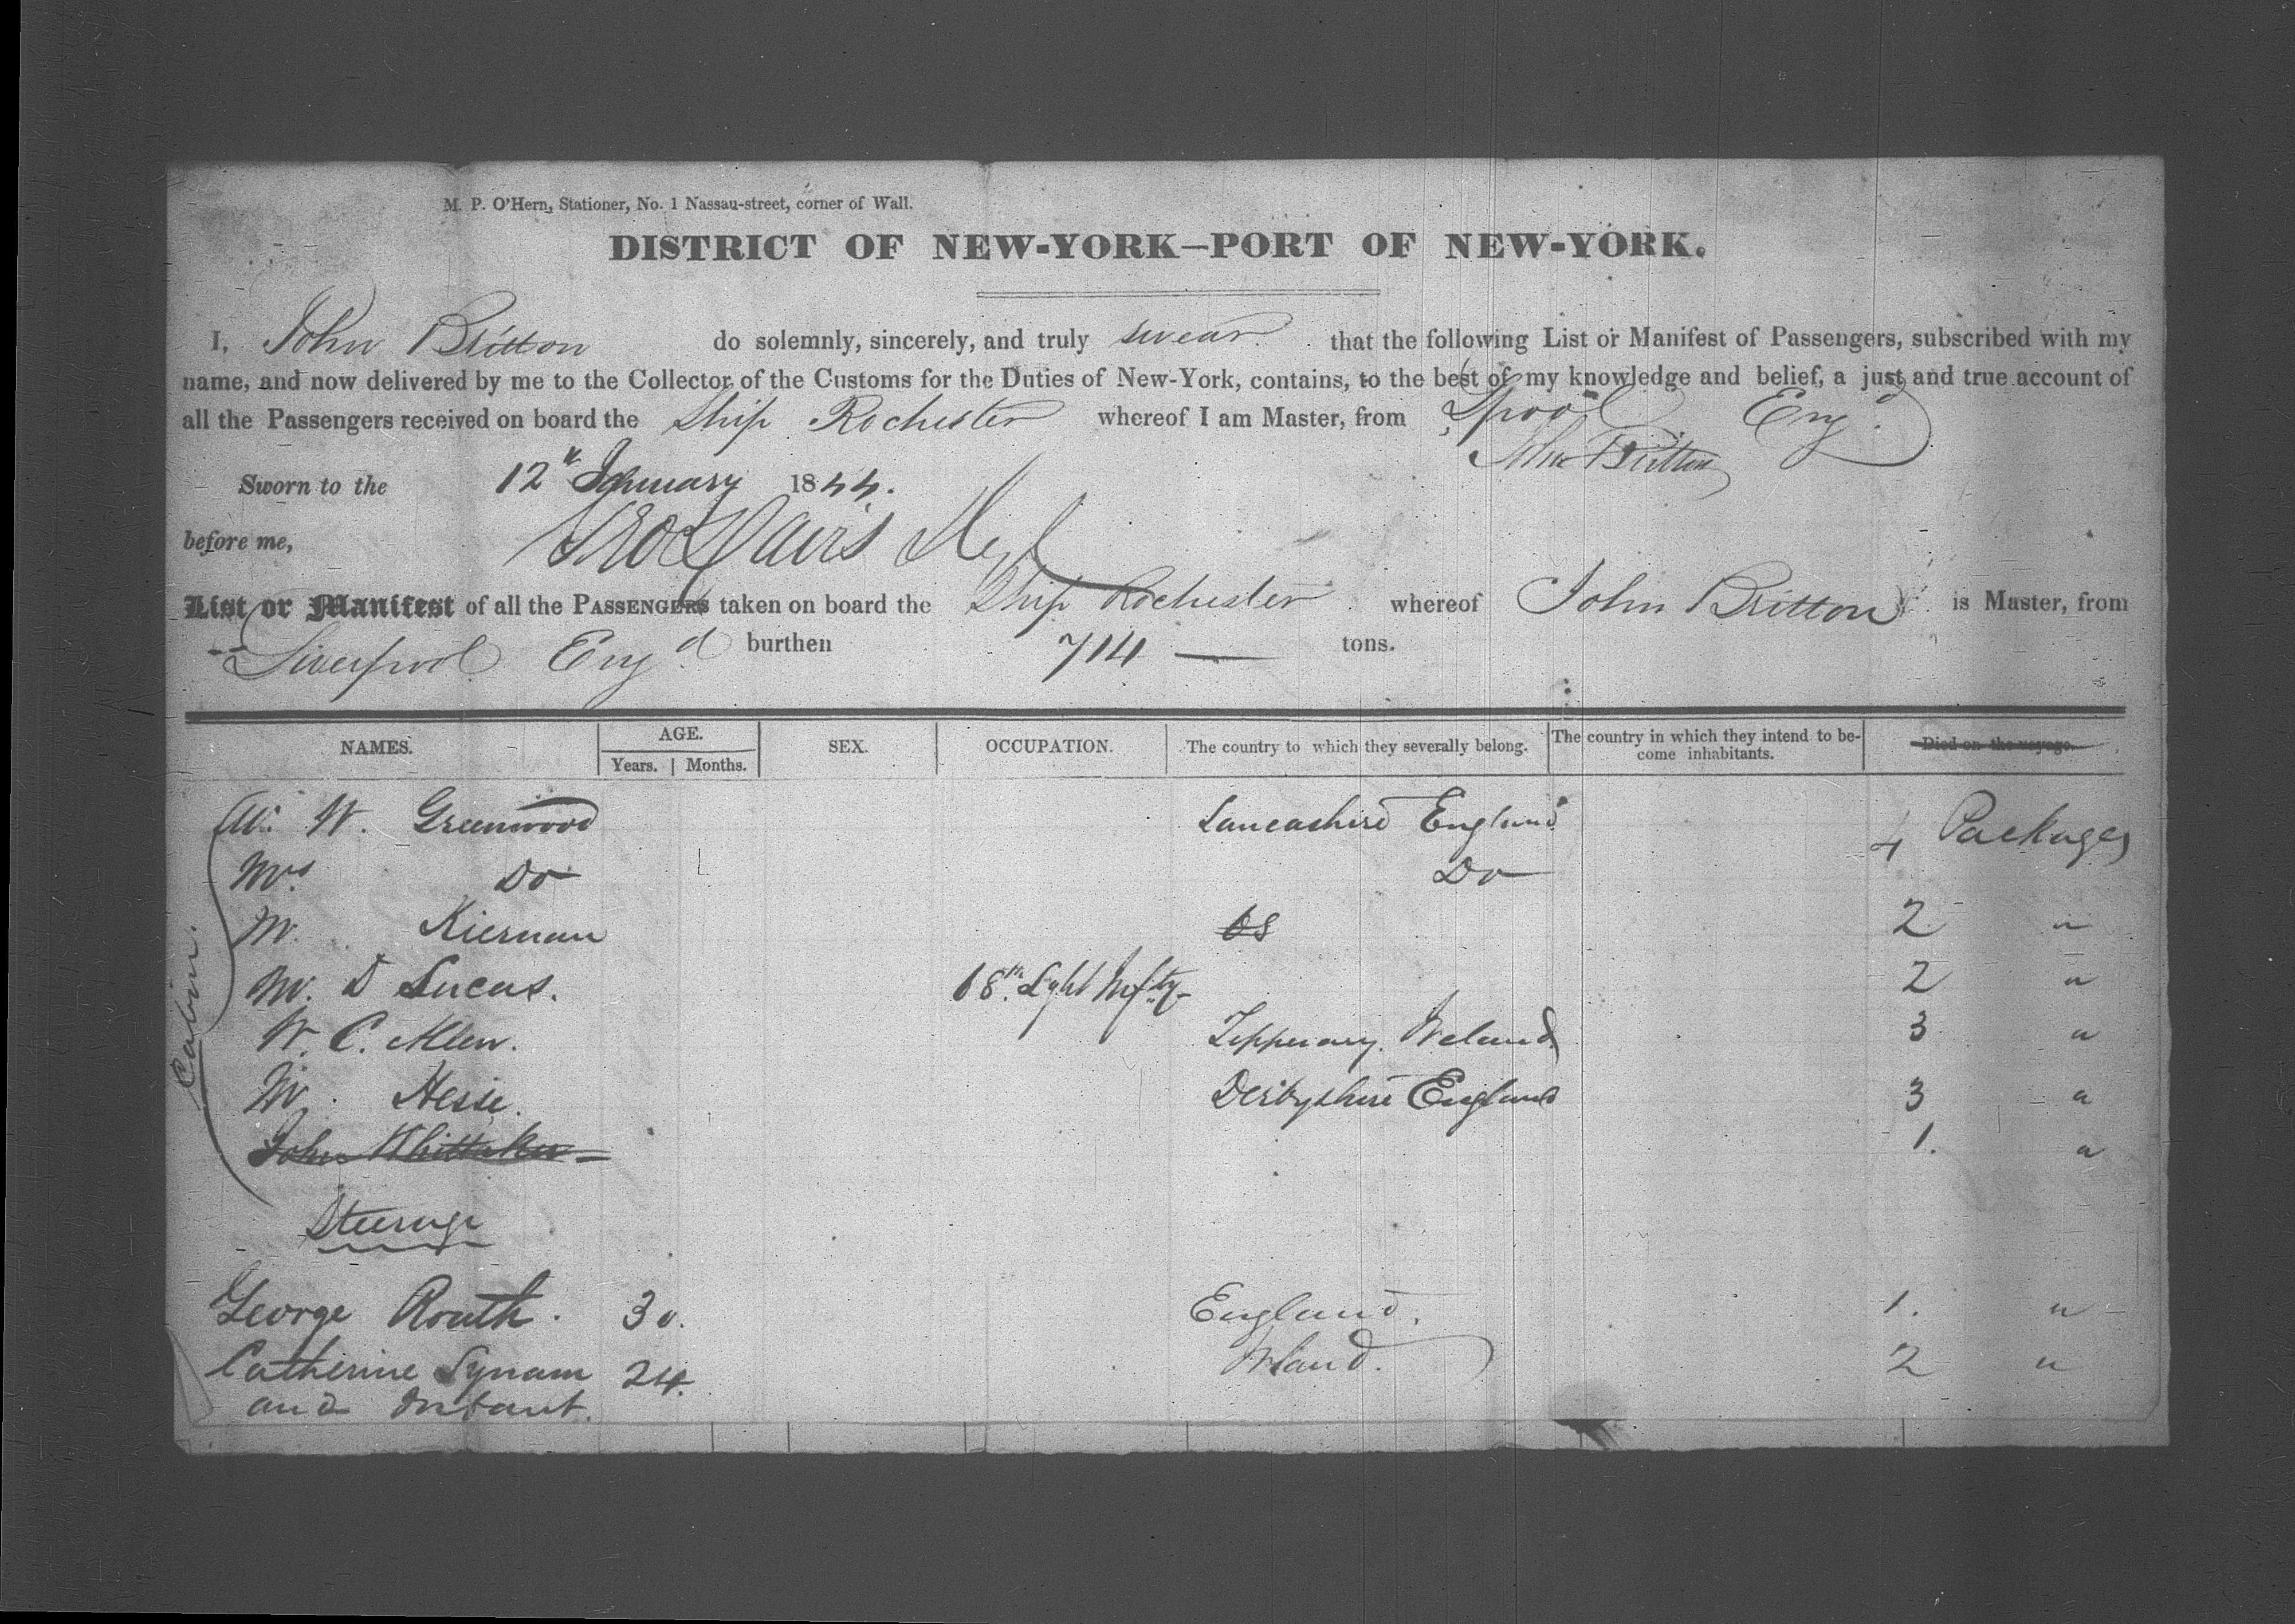 M. P. O'Hern, Stationer, No. 1 Nassau-street, corner of Wall.
DISTRICT OF NEW-YORK—PORT OF NEW-YORK.
I, John Britton do solemnly, sincerely, and truly swear that the following List or Manifest of Passengers, subscribed with my
name, and now delivered by me to the Collector of the Customs for the Duties of New-York, contains, to the best of my knowledge and belief, a just and true account of
all the Passengers received on board the Ship Rochester whereof I am Master, from Lpool Engd.
John Britton
Sworn to the 12th January 1844.
before me, Geo Davis
List or Manifest of all the PASSENGERS taken on board the Ship Rochester whereof John Britton is Master, from
Liverpool Engd burthen 714 — tons.
NAMES. AGE. Years. Months. SEX. OCCUPATION. The country to which they severally belong. The country in which they intend to become inhabitants. Died on the voyage.
Cabin.
Mr. W. Greenwood Lancashire England 4 Packages
Mrs. Do Do
Mr. Kiernan 2 "
Mr. D Lucas. 68th Light Infty 2 "
W. C. Allen. Tipperary. Ireland 3 "
Mr. Hesse. Derbyshire England 3 "
John Whittaker 1. "
Steerage
George Routh. 30. England. 1. "
Catherine Lynam 24. Ireland. 2 "
and Infant.